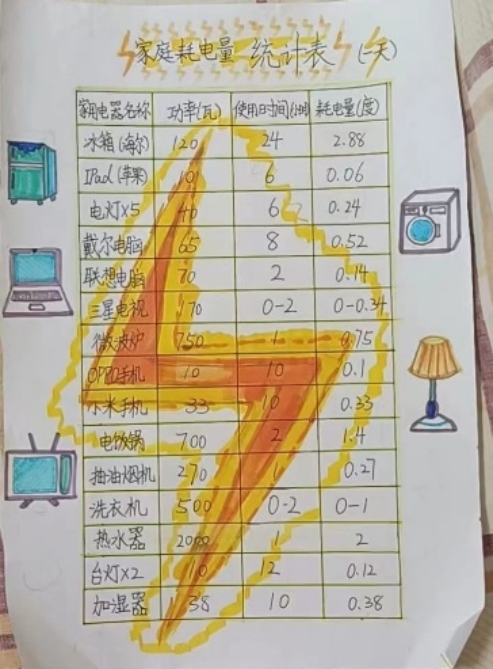 家庭耗电量 统计表 (一天)
家用电器名称 功率(瓦) 使用时间(小时) 耗电量(度)
冰箱(海尔) 120 24 2.88
IPad(苹果) 10 6 0.06
电灯x5 40 6 0.24
戴尔电脑 65 8 0.52
联想电脑 70 2 0.14
三星电视 170 0-2 0-0.34
微波炉 750 1 0.75
OPPO手机 10 10 0.1
小米手机 33 10 0.33
电饭锅 700 2 1.4
抽油烟机 270 1 0.27
洗衣机 500 0-2 0-1
热水器 2000 1 2
台灯x2 10 12 0.12
加湿器 38 10 0.38